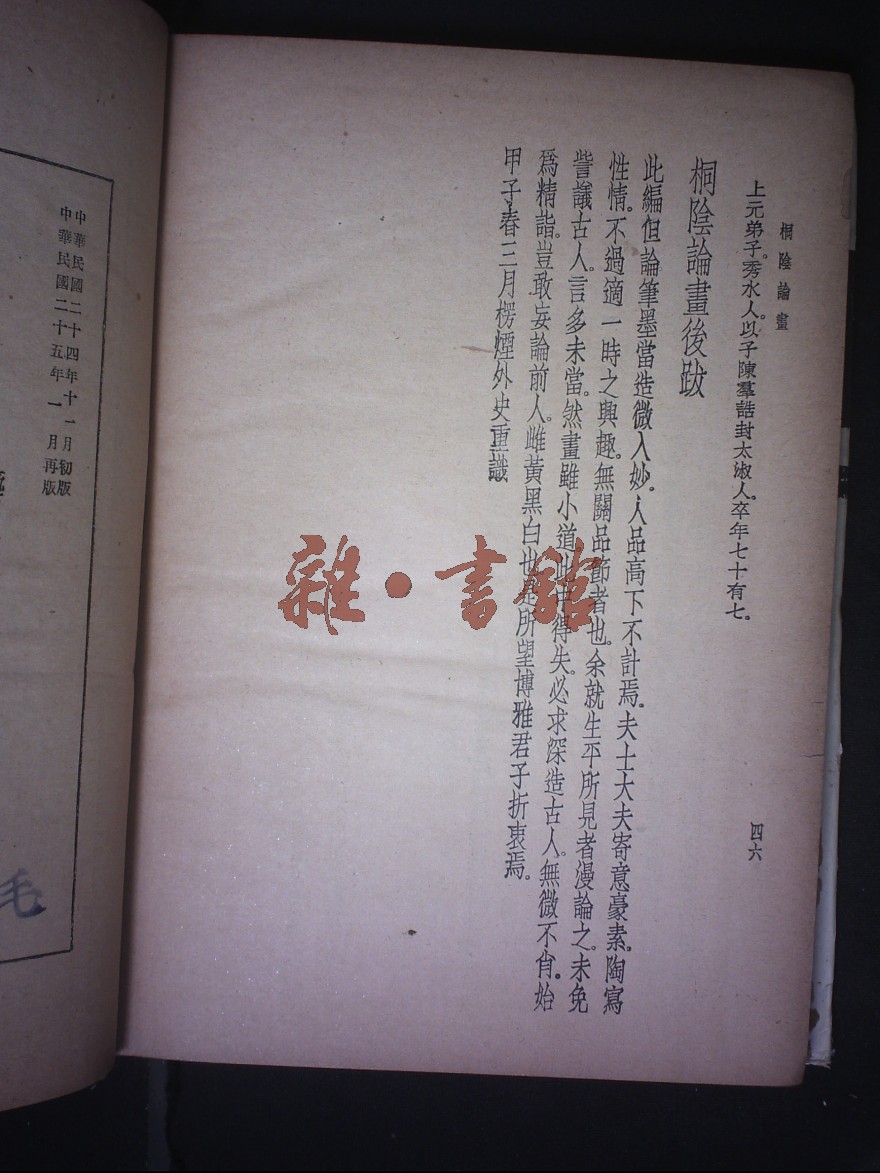 桐陰論畫
四六
上元弟子。秀水人。以子陳羣誥封太淑人。卒年七十有七。
桐陰論畫後跋
此編但論筆墨當造微入妙。人品高下不計焉。夫士大夫寄意豪素。陶寫
性情。不過適一時之興趣。無關品節者也。余就生平所見者漫論之。未免
訾議古人。言多未當。然畫雖小道。此中得失。必求深造古人。無微不肖。始
爲精詣。豈敢妄論前人。雌黃黑白也。是所望博雅君子折衷焉。
甲子春三月楞煙外史重識
中華民國二十四年十一月初版
中華民國二十五年一月再版
毛
雜·書館